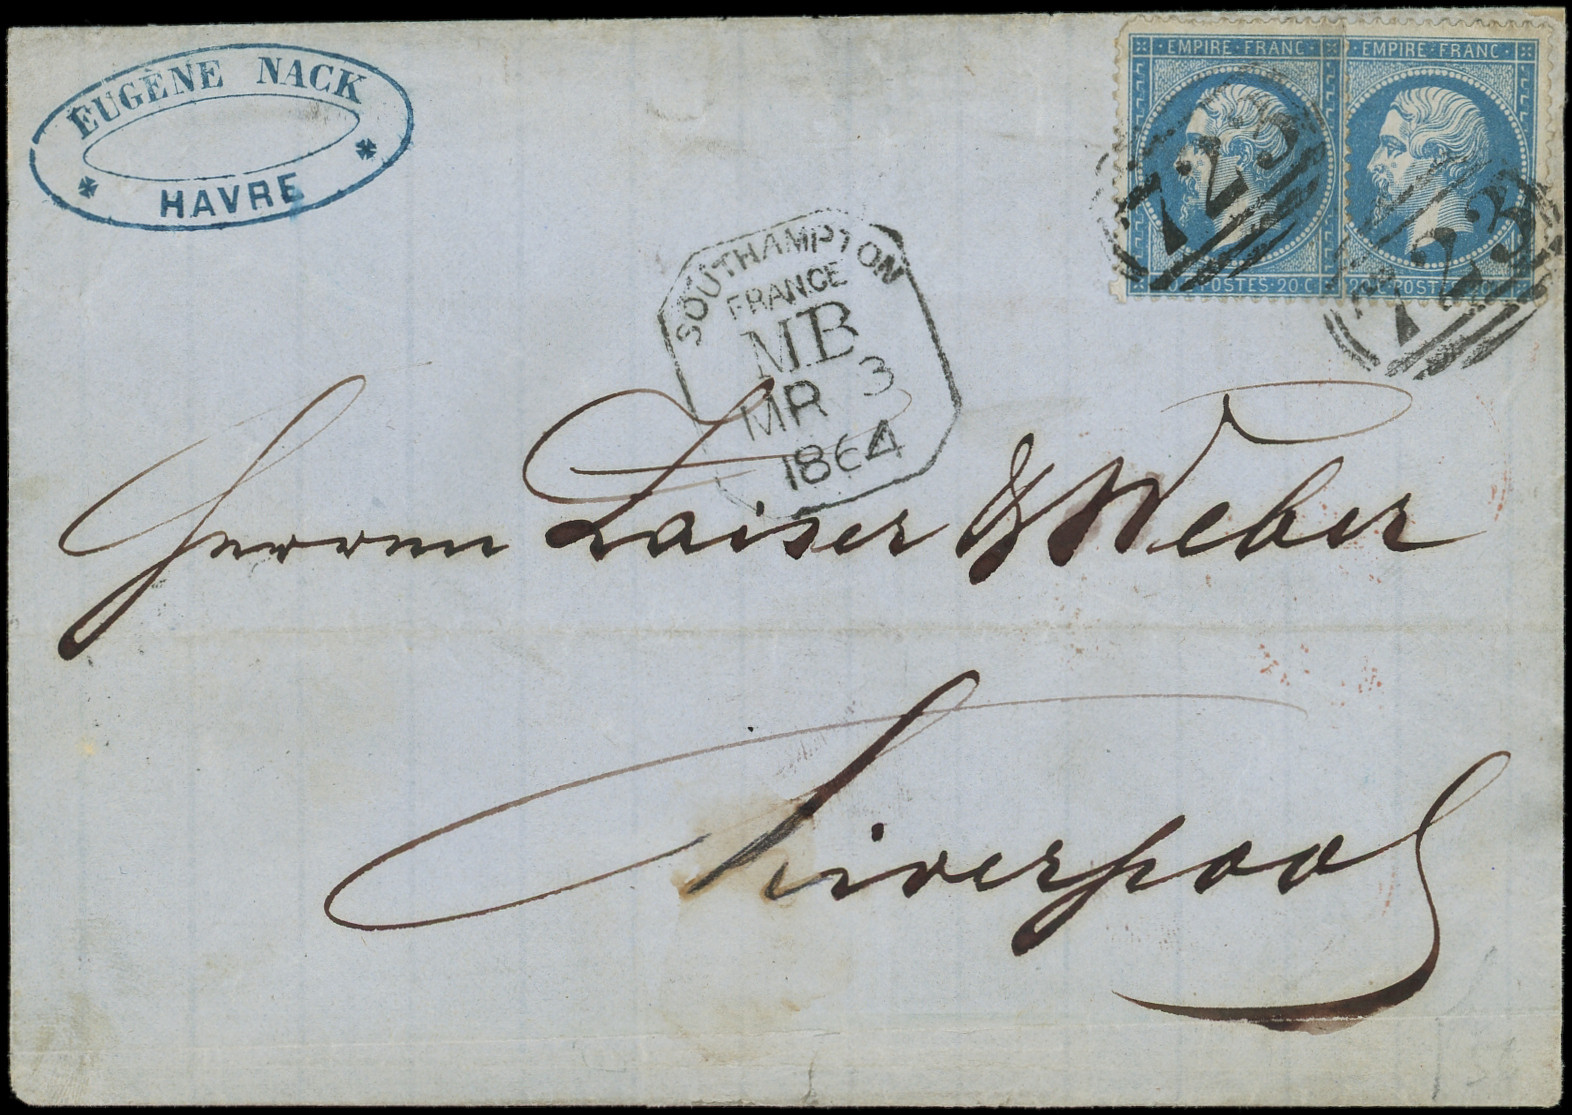 EUGÈNE NACK
HAVRE
EMPIRE·FRANC
EMPIRE·FRANC
POSTES·20C
723
723
SOUTHAMPTON
FRANCE
M.B
MR 3
1864
Herren Kaiser & Weber
Liverpool